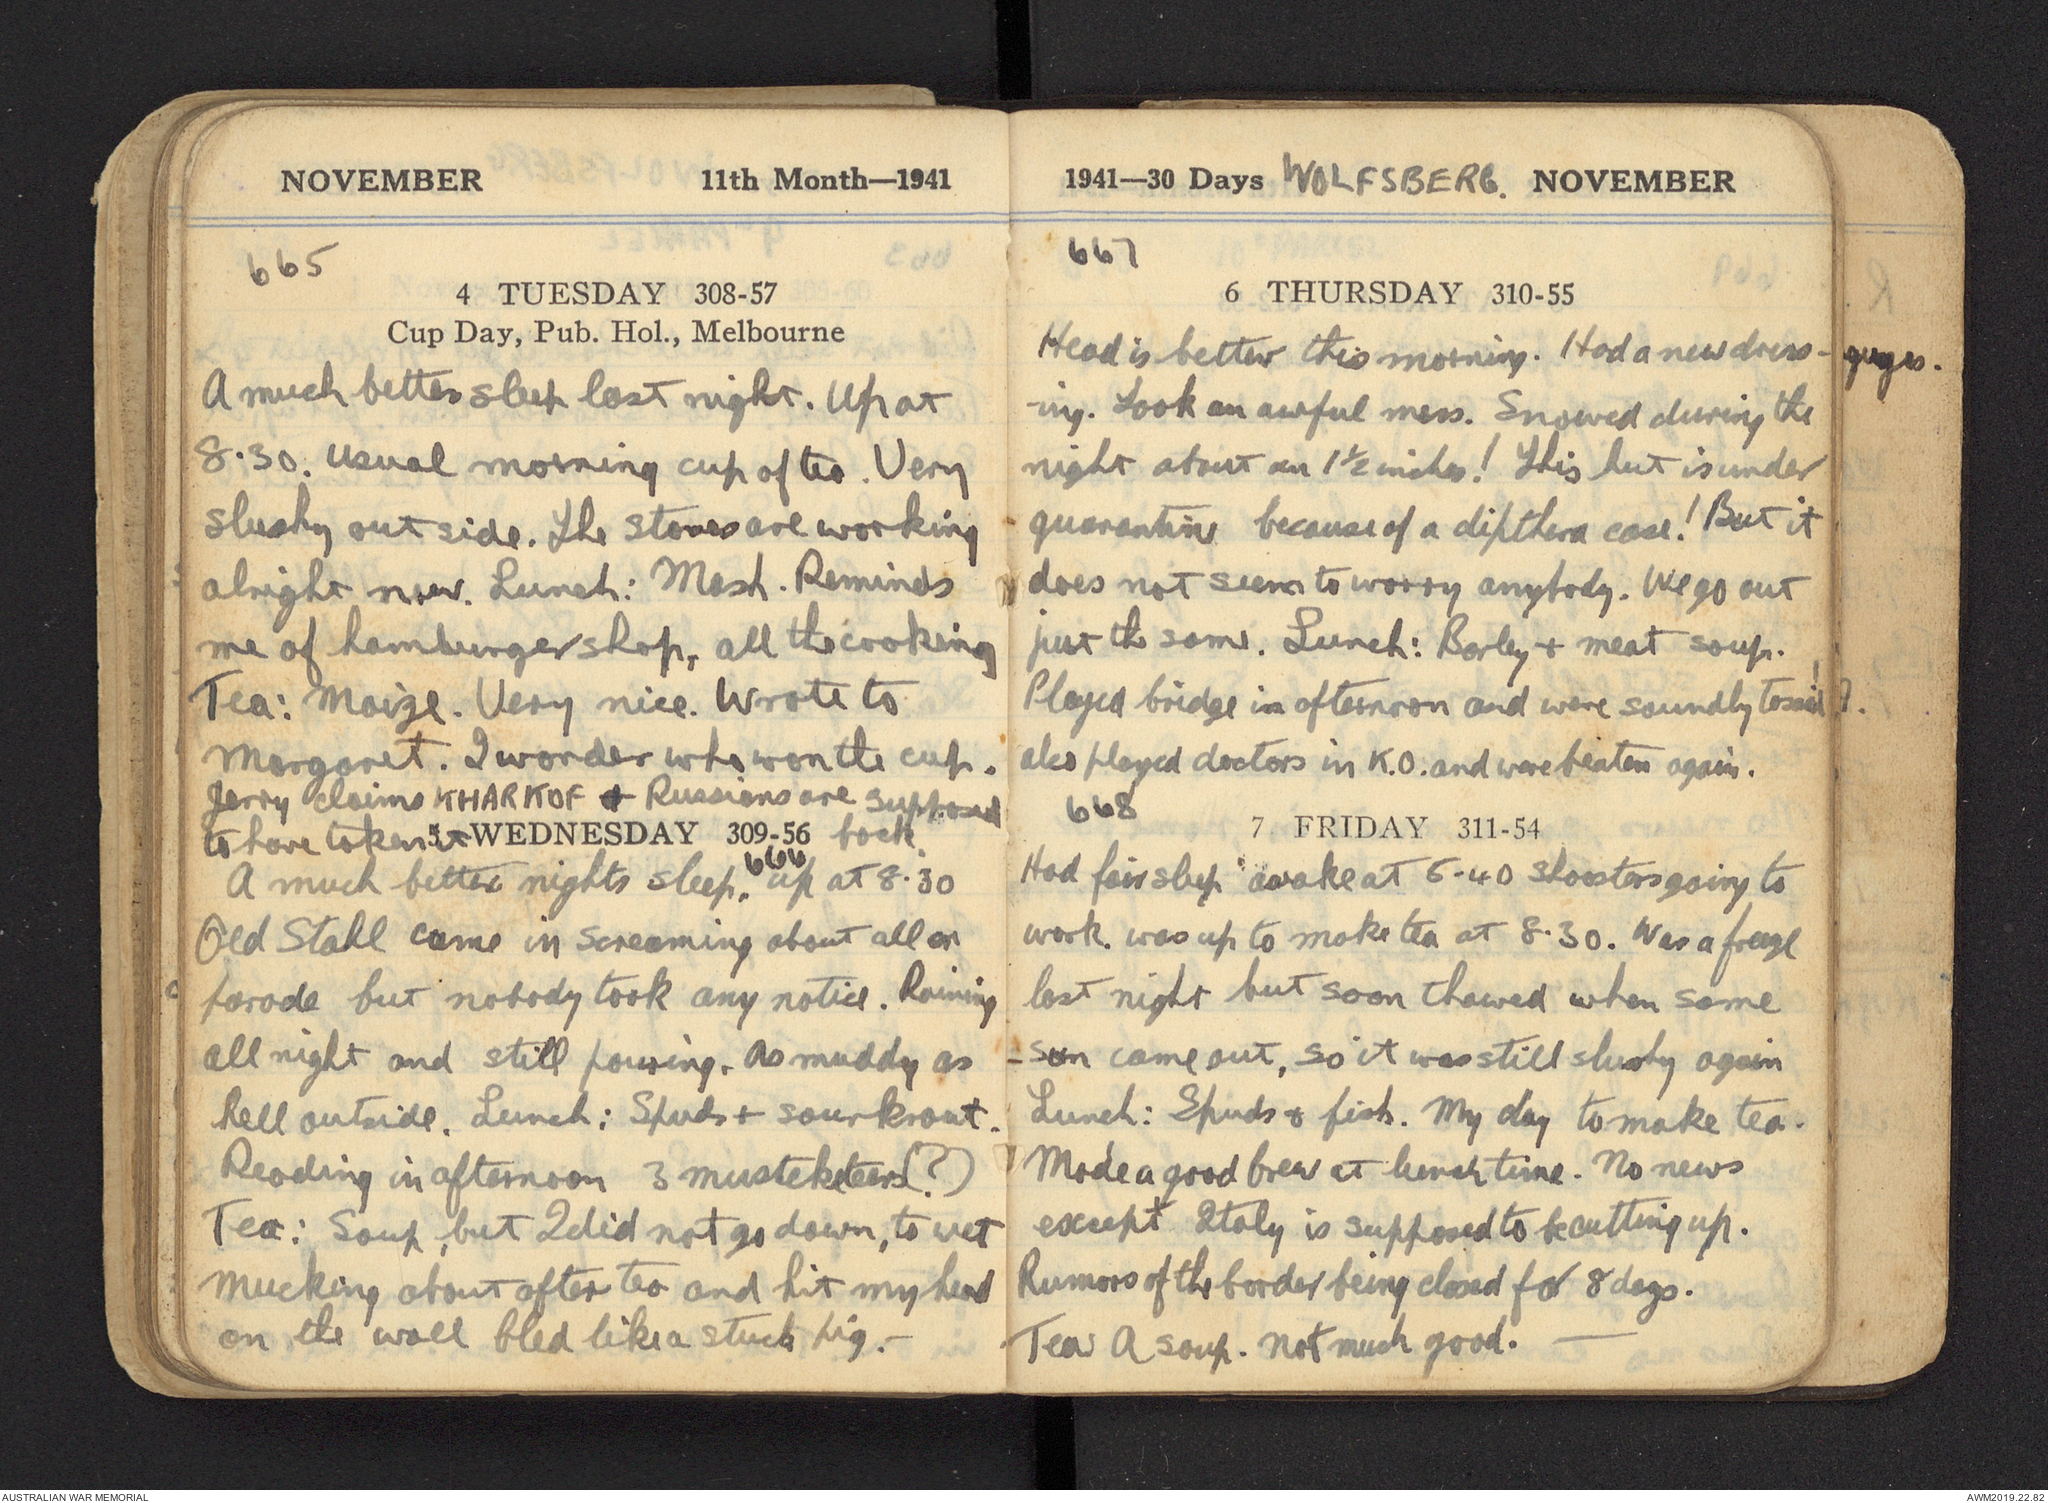 NOVEMBER 11th Month—1941
665
4 TUESDAY 308-57
Cup Day, Pub. Hol., Melbourne
A much better sleep last night. Up at
8.30. usual morning cup of tea. Very
slushy out side. The stoves are working
alright now. Lunch: Mash. Reminds
me of hamburger shop, all the cooking
Tea: Maize. Very nice. Wrote to
Margaret. I wonder who won the cup.
Jerry claims KHARKOF & Russians are supposed
to have taken it back.
5 WEDNESDAY 309-56
666
A much better nights sleep. up at 8.30
Old Stahl came in screaming about all on
parade but nobody took any notice. Raining
all night and still pouring. As muddy as
hell outside. Lunch: Spuds + sourkrout.
Reading in afternoon 3 musteketeers (?)
Tea: Soup, but I did not go down, to wet
Mucking about after tea and hit my head
on the wall bled like a stuck pig.—
1941—30 Days WOLFSBERG. NOVEMBER
667
6 THURSDAY 310-55
Head is better this morning. Had a new dress-
-ing. Look an awful mess. Snowed during the
night about an 1½ inches! This hut is under
quarantine because of a dipthera case! But it
does not seem to worry anybody. We go out
just the same. Lunch: Barley + meat soup.
Played bridge in afternoon and were soundly
also played doctors in K.O. and were beaten again.
668
7 FRIDAY 311-54
Had fair sleep awake at 6-40 shoosters going to
work. was up to make tea at 8.30. Was a freeze
last night but soon thawed when some
sun came out, so it was still slushy again
Lunch: Spuds & fish. My day to make tea.
Made a good brew at lunch time. No news
except Italy is supposed to be cutting up.
Rumors of the border being closed for 8 days.
Tea A soup. not much good. —
AUSTRALIAN WAR MEMORIAL
AWM2019.22.82